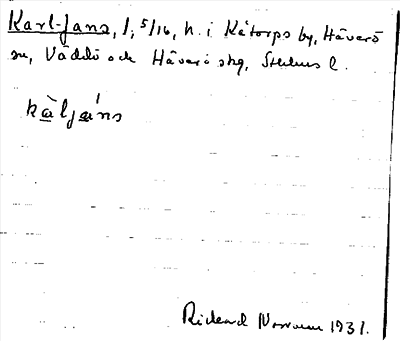 Karl-Jans, 1, 5/16, h. i Kåtorps by, Häverö
sn, Väddö och Häverö skg, Sthlms l.
kàljáns
Rickard 1931.